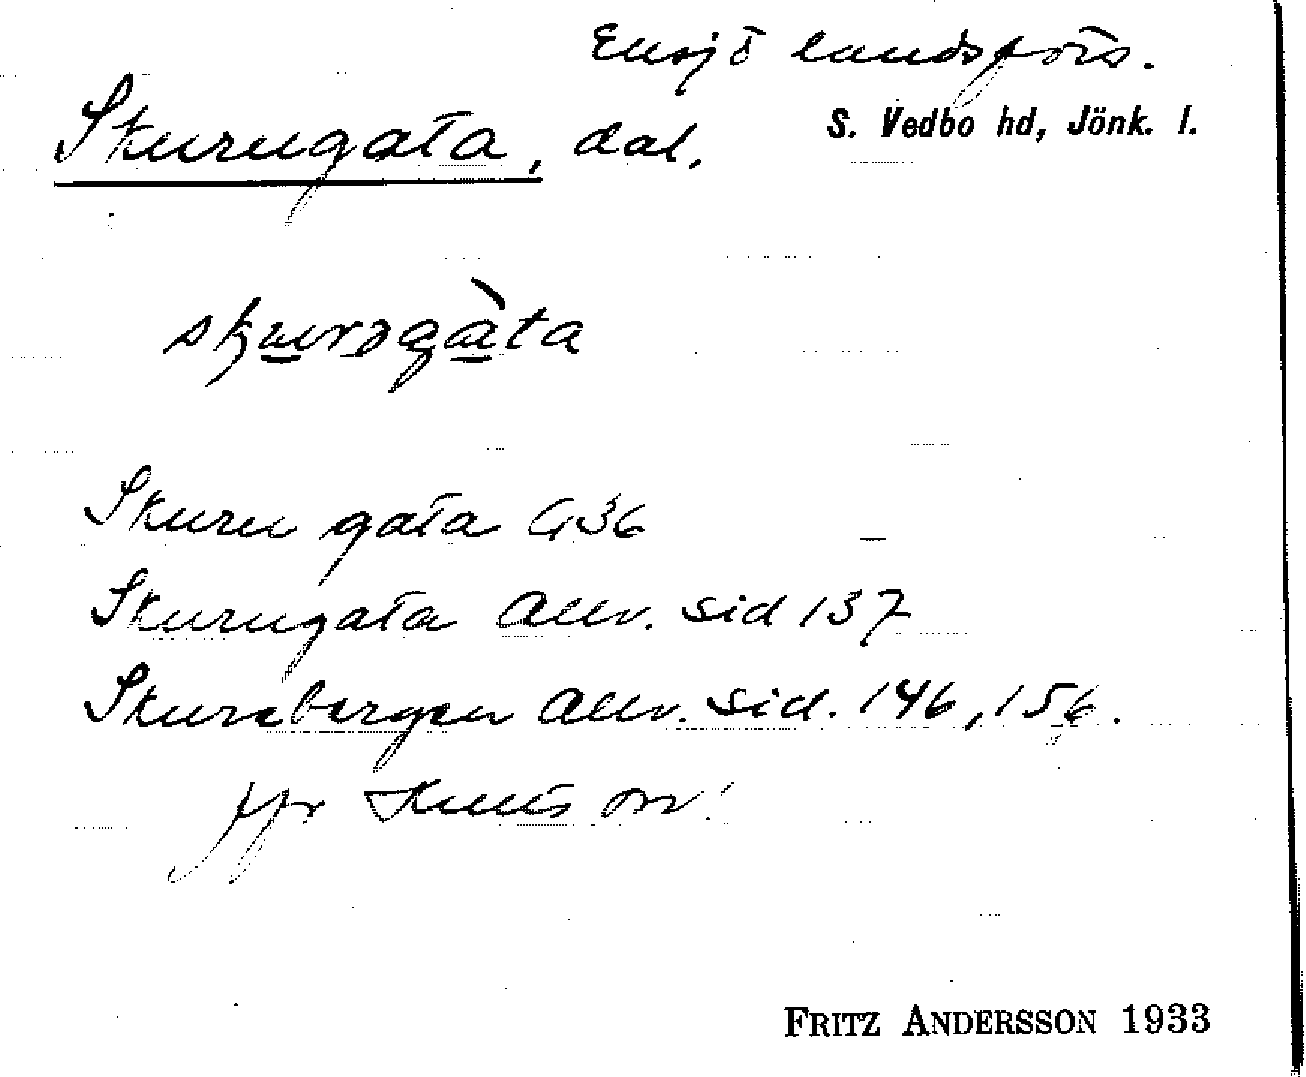 Eksjö landsförs.
Skurugata, dal.
S. Vedbo hd, Jönk. l.
skurugàta
Skuru gata G36
Skurugata Allv. sid 137
Skurebergen Allv. sid. 146, 156.
jfr
FRITZ ANDERSSON 1933